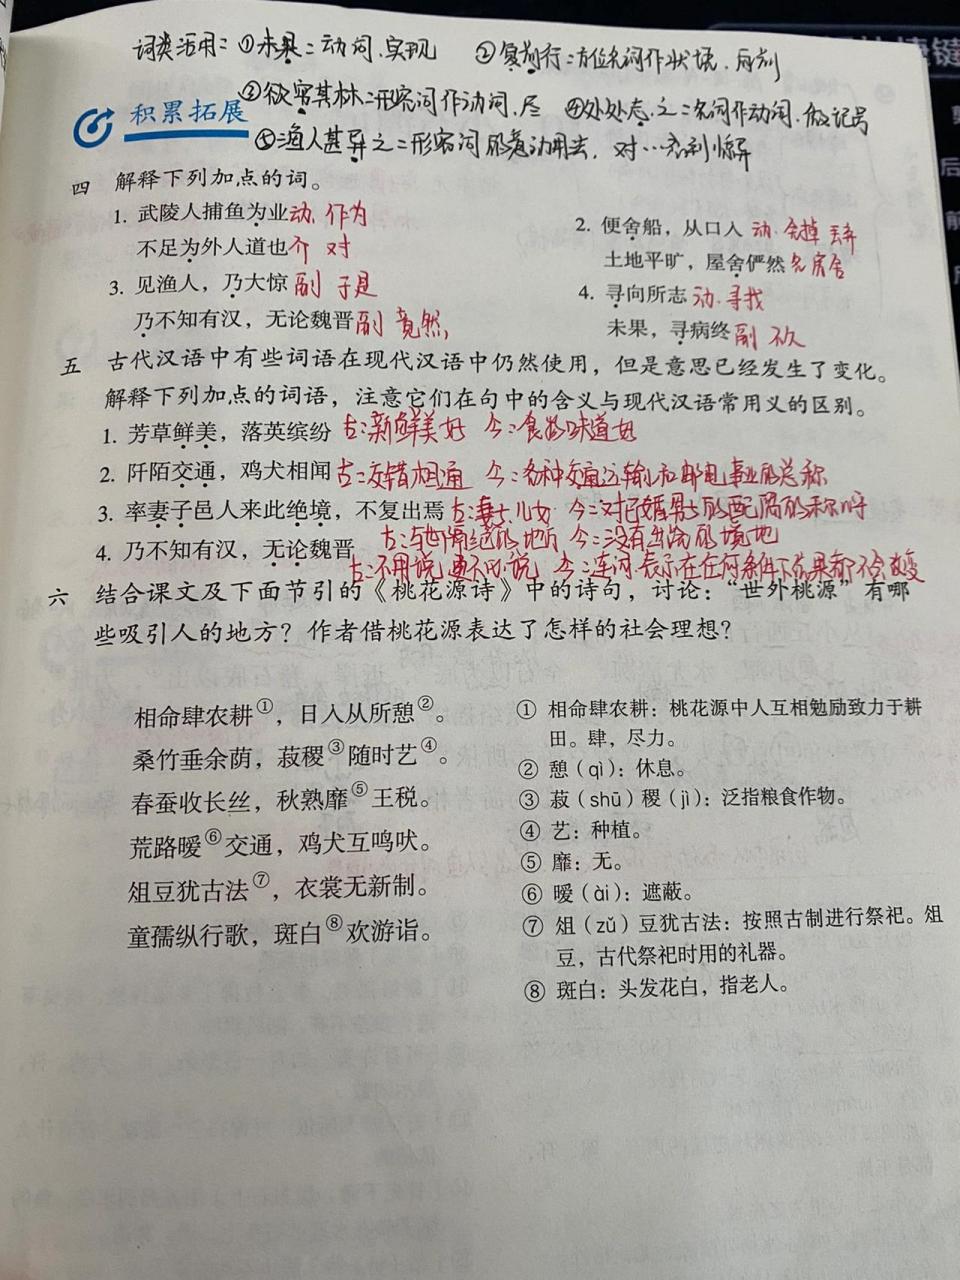 词类活用：①未果：动词、实现 ②复前行：方位名词作状语、向前
③欲穷其林：形容词作动词、尽 ④处处志之：名词作动词、做记号
积累拓展
⑤渔人甚异之：形容词的意动用法，对…感到惊异
四 解释下列加点的词。
1. 武陵人捕鱼为业动 作为
不足为外人道也介 对
2. 便舍船，从口入 动 舍掉 丢弃
土地平旷，屋舍俨然名 房舍
3. 见渔人，乃大惊 副 于是
乃不知有汉，无论魏晋副 竟然，
4. 寻向所志 动.寻找
未果，寻病终副 不久
五 古代汉语中有些词语在现代汉语中仍然使用，但是意思已经发生了变化。
解释下列加点的词语，注意它们在句中的含义与现代汉语常用义的区别。
1. 芳草鲜美，落英缤纷 古：新鲜美好 今：食物味道好
2. 阡陌交通，鸡犬相闻 古：交错相通 今：各种交通运输和邮电事业的总称
3. 率妻子邑人来此绝境，不复出焉 古：妻子、儿女 今：对已婚男士的配偶的称呼
古：与世隔绝的地方 今：没有出路的境地
4. 乃不知有汉，无论魏晋
古：不用说，更不必说 今：连词，表示在任何条件下结果都不会改变
六 结合课文及下面节引的《桃花源诗》中的诗句，讨论：“世外桃源”有哪
些吸引人的地方？作者借桃花源表达了怎样的社会理想？
相命肆农耕①，日入从所憩②。
桑竹垂余荫，菽稷③随时艺④。
春蚕收长丝，秋熟靡⑤王税。
荒路暧⑥交通，鸡犬互鸣吠。
俎豆犹古法⑦，衣裳无新制。
童孺纵行歌，斑白⑧欢游诣。
① 相命肆农耕：桃花源中人互相勉励致力于耕
田。肆，尽力。
② 憩（qì）：休息。
③ 菽（shū）稷（jì）：泛指粮食作物。
④ 艺：种植。
⑤ 靡：无。
⑥ 暧（ài）：遮蔽。
⑦ 俎（zǔ）豆犹古法：按照古制进行祭祀。俎
豆，古代祭祀时用的礼器。
⑧ 斑白：头发花白，指老人。